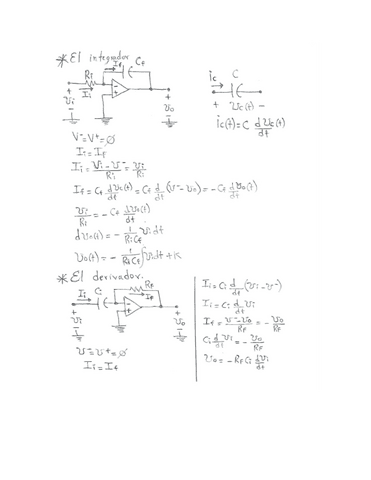 * El integrador
If Cf
Ri
Ii
vi
vo
ic C
+ vc(t) −
ic(t) = C dvc(t)/dt
V⁻ = V⁺ = ∅
Ii = If
Ii = (vi − v⁻)/Ri = vi/Ri
If = Cf dvc(t)/dt = Cf d/dt (v⁻ − vo) = −Cf dvo(t)/dt
vi/Ri = −Cf dvo(t)/dt
dvo(t) = − 1/(RiCf) vi dt
vo(t) = − 1/(RiCf) ∫vi dt + K
* El derivador.
Ii Ci
RF
IF
vi
vo
v⁻ = v⁺ = ∅
Ii = If
Ii = Ci d/dt (vi − v⁻)
Ii = Ci d/dt vi
If = (v⁻ − vo)/RF = − vo/RF
Ci d/dt vi = − vo/RF
vo = −RF Ci dvi/dt